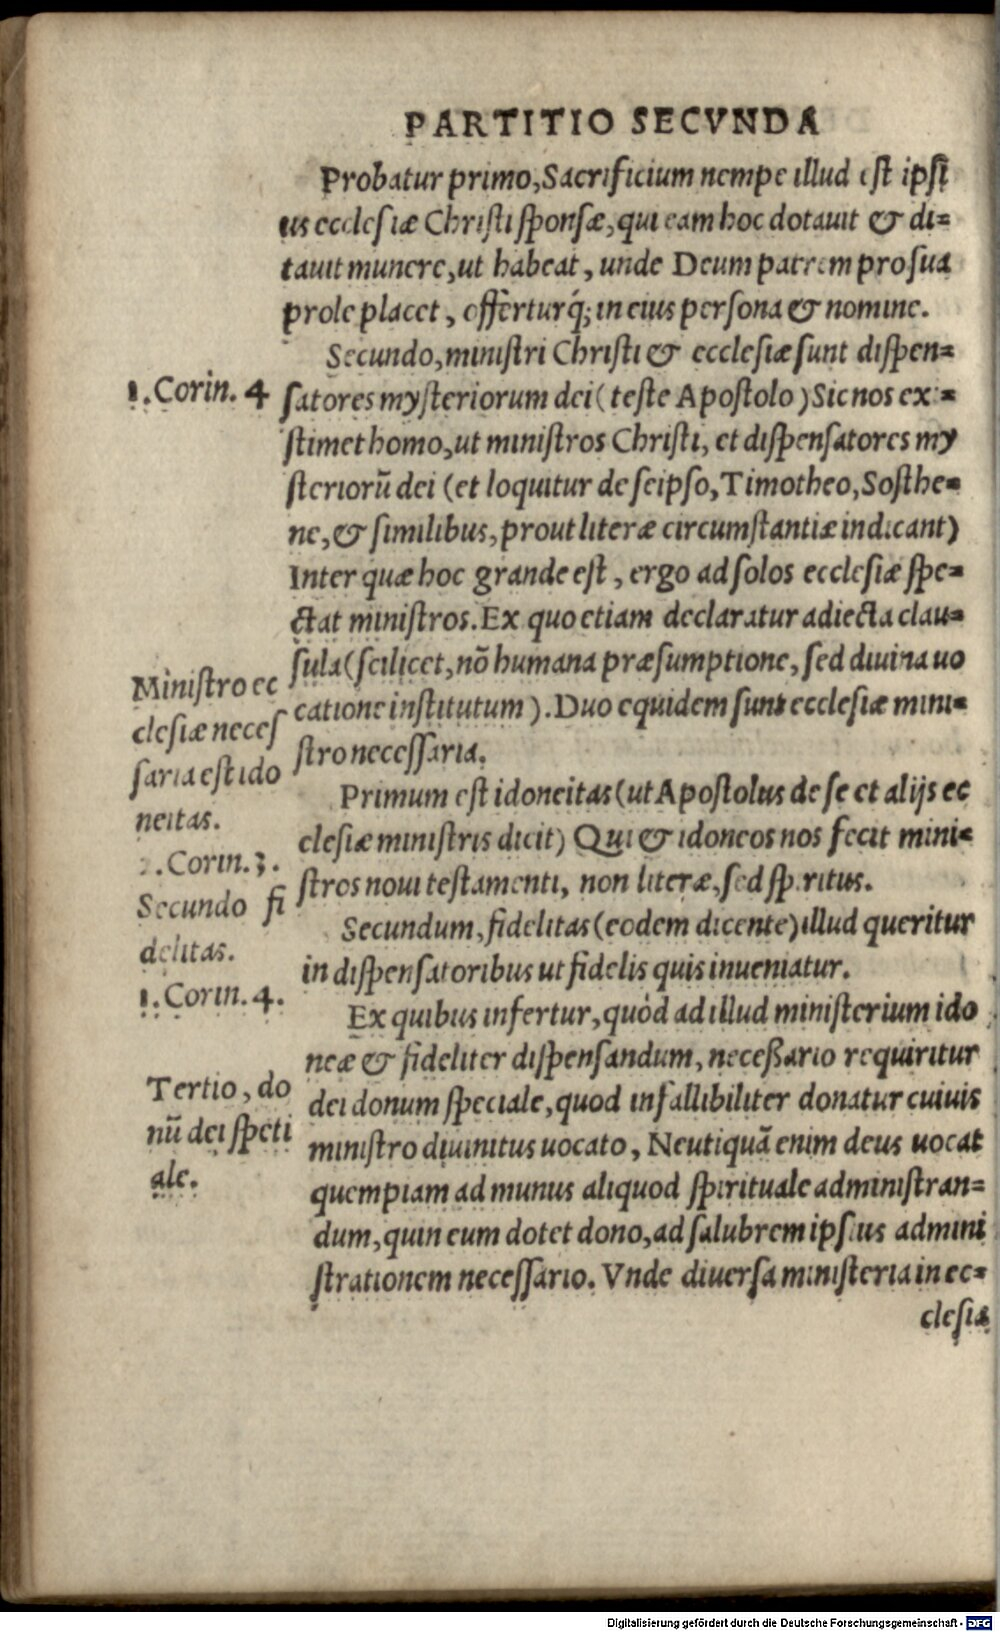 PARTITIO SECVNDA
Probatur primo, Sacrificium nempe illud est ipsi
us ecclesiæ Christi sponsæ, qui eam hoc dotauit & di=
tauit munere, ut habeat, unde Deum patrem pro sua
prole placet, offerturq́; in eius persona & nomine.
Secundo, ministri Christi & ecclesiæ sunt dispen=
1. Corin. 4
satores mysteriorum dei (teste Apostolo) Sic nos exi=
stimet homo, ut ministros Christi, et dispensatores my
steriorũ dei (et loquitur de seipso, Timotheo, Sosthe=
ne, & similibus, prout literæ circumstantiæ indicant)
Inter quæ hoc grande est, ergo ad solos ecclesiæ spe=
ctat ministros. Ex quo etiam declaratur adiecta clau=
sula (scilicet, nõ humana præsumptione, sed diuina uo
catione institutum). Duo equidem sunt ecclesiæ mini=
stro necessaria.
Ministro ec
clesiæ neces
saria est ido
neitas.
2. Corin. 3.
Secundo fi
delitas.
1. Corin. 4.
Primum est idoneitas (ut Apostolus de se et alijs ec
clesiæ ministris dicit) Qui & idoneos nos fecit mini=
stros noui testamenti, non literæ, sed spiritus.
Secundum, fidelitas (eodem dicente) illud queritur
in dispensatoribus ut fidelis quis inueniatur.
Ex quibus infertur, quòd ad illud ministerium ido
neæ & fideliter dispensandum, neceßario requiritur
Tertio, do
nũ dei speti
ale.
dei donum speciale, quod infallibiliter donatur cuiuis
ministro diuinitus uocato, Neutiquã enim deus uocat
quempiam ad munus aliquod spirituale administran=
dum, quin eum dotet dono, ad salubrem ipsius admini
strationem necessario. Vnde diuersa ministeria in ec=
clesia
Digitalisierung gefördert durch die Deutsche Forschungsgemeinschaft - DFG